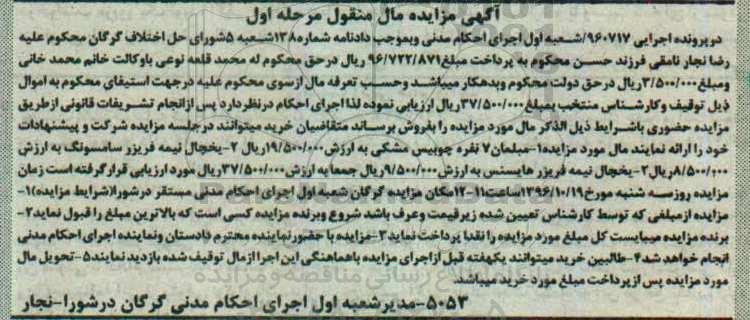 آگهی مزایده مال منقول مرحله اول
درپرونده اجرایی ۹۶۰۷۱۷/شعبه اول اجرای احکام مدنی وبموجب دادنامه شماره۱۳۸شعبه ۵شورای حل اختلاف گرگان محکوم علیه
رضا نجار نامقی فرزند حسن محکوم به پرداخت مبلغ۹۶/۷۲۲/۸۷۱ ریال درحق محکوم له محمد قلعه نوعی باوکالت خانم محمد خانی
ومبلغ۳/۵۰۰/۰۰۰ ریال درحق دولت محکوم وبدهکار میباشد وحسب تعرفه مال ازسوی محکوم علیه درجهت استیفای محکوم به اموال
ذیل توقیف وکارشناس منتخب بمبلغ۳۷/۵۰۰/۰۰۰ریال ارزیابی نموده لذا اجرای احکام درنظردارد پس ازانجام تشریفات قانونی ازطریق
مزایده حضوری باشرایط ذیل الذکر مال مورد مزایده را بفروش برساند متقاضیان خرید میتوانند درجلسه مزایده شرکت و پیشنهادات
خود را ارائه نمایند مال مورد مزایده۱-مبلمان۷ نفره چوبیس مشکی به ارزش۱۹/۵۰۰/۰۰۰ریال ۲-یخچال نیمه فریزر سامسونگ به ارزش
۸/۵۰۰/۰۰۰ریال۳-یخچال نیمه فریزر هایسنس به ارزش۹/۵۰۰/۰۰۰ریال جمعابه ارزش۳۷/۵۰۰/۰۰۰ریال مورد ارزیابی قرارگرفته است زمان
مزایده روزسه شنبه مورخ۱۳۹۶/۱۰/۱۹ساعت۱۱-۱۲مکان مزایده گرگان شعبه اول اجرای احکام مدنی مستقر درشورا(شرایط مزایده)۱-
مزایده ازمبلغی که توسط کارشناس تعیین شده زیرقیمت وعرف باشد شروع وبرنده مزایده کسی است که بالاترین مبلغ را قبول نماید۲-
برنده مزایده میبایست کل مبلغ مورد مزایده را نقدا پرداخت نماید۳-مزایده با حضورنماینده محترم دادستان ونماینده اجرای احکام مدنی
انجام خواهد شد۴-طالبین خرید میتوانند یکهفته قبل ازاجرای مزایده باهماهنگی این اجرا ازمال توقیف شده بازدید نمایند۵-تحویل مال
مورد مزایده پس ازپرداخت مبلغ مورد خرید میباشد
۵۰۵۳-مدیرشعبه اول اجرای احکام مدنی گرگان درشورا-نجار